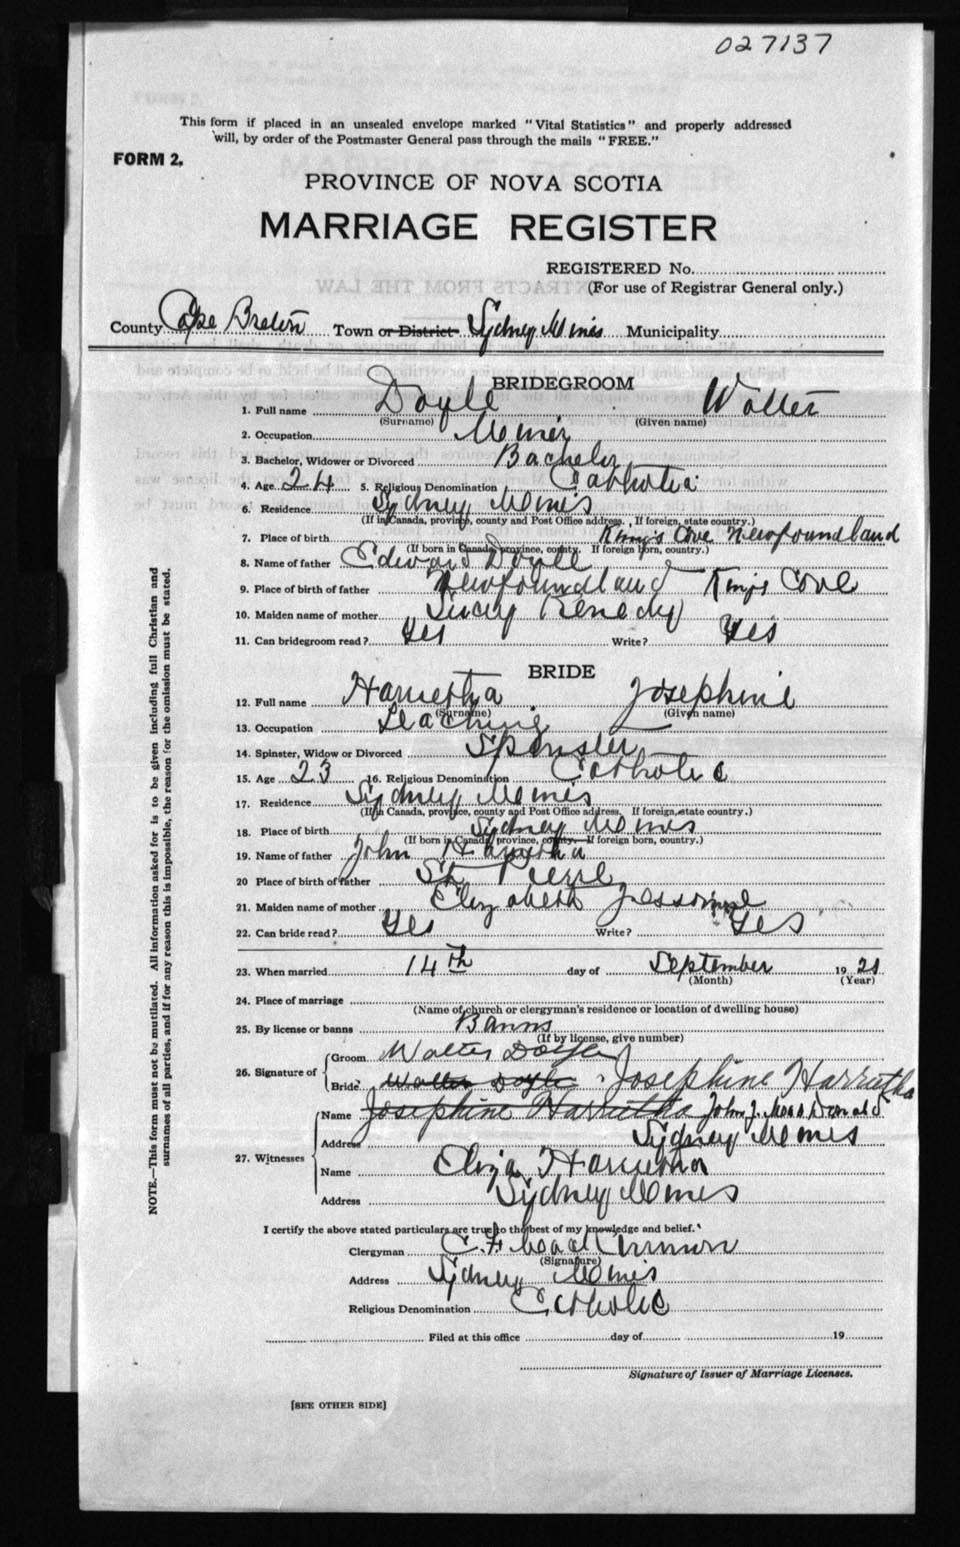 027137
This form if placed in an unsealed envelope marked "Vital Statistics" and properly addressed
will, by order of the Postmaster General pass through the mails "FREE."
FORM 2.
PROVINCE OF NOVA SCOTIA
MARRIAGE REGISTER
REGISTERED No.
(For use of Registrar General only.)
County Cape Breton Town or District Sydney Mines Municipality
BRIDEGROOM
1. Full name Doyle Walter
(Surname) (Given name)
2. Occupation Miner
3. Bachelor, Widower or Divorced Bachelor
4. Age 24 5. Religious Denomination Catholic
6. Residence Sydney Mines
(If in Canada, province, county and Post Office address. If foreign, state country.)
7. Place of birth King's Cove Newfoundland
(If born in Canada, province, county. If foreign born, country.)
8. Name of father Edward Doyle
9. Place of birth of father Newfoundland Kings Cove
10. Maiden name of mother Lucy Kenedy
11. Can bridegroom read? Yes Write? Yes
BRIDE
12. Full name Harruetha Josephine
(Surname) (Given name)
13. Occupation Teaching
14. Spinster, Widow or Divorced Spinster
15. Age 23 16. Religious Denomination Catholic
17. Residence Sydney Mines
(If in Canada, province, county and Post Office address. If foreign, state country.)
18. Place of birth Sydney Mines
(If born in Canada, province, county. If foreign born, country.)
19. Name of father John
20 Place of birth of father St Pierre
21. Maiden name of mother Elizabeth
22. Can bride read? Yes Write? Yes
23. When married 14th day of September 19 21
(Month) (Year)
24. Place of marriage
(Name of church or clergyman's residence or location of dwelling house)
25. By license or banns Banns
(If by license, give number)
26. Signature of
Groom Walter Doyle
Bride Walter Doyle Josephine Harrutha
27. Witnesses
Name Josephine Harrutha John J. MacDonald
Address Sydney Mines
Name Eliza Harruetha
Address Sydney Mines
I certify the above stated particulars are true to the best of my knowledge and belief.
Clergyman C. F. MacKinnon
(Signature)
Address Sydney Mines
Religious Denomination Catholic
Filed at this office day of 19
Signature of Issuer of Marriage Licenses.
[SEE OTHER SIDE]
NOTE.—This form must not be mutilated. All information asked for is to be given including full Christian and
surnames of all parties, and if for any reason this is impossible, the reason for the omission must be stated.